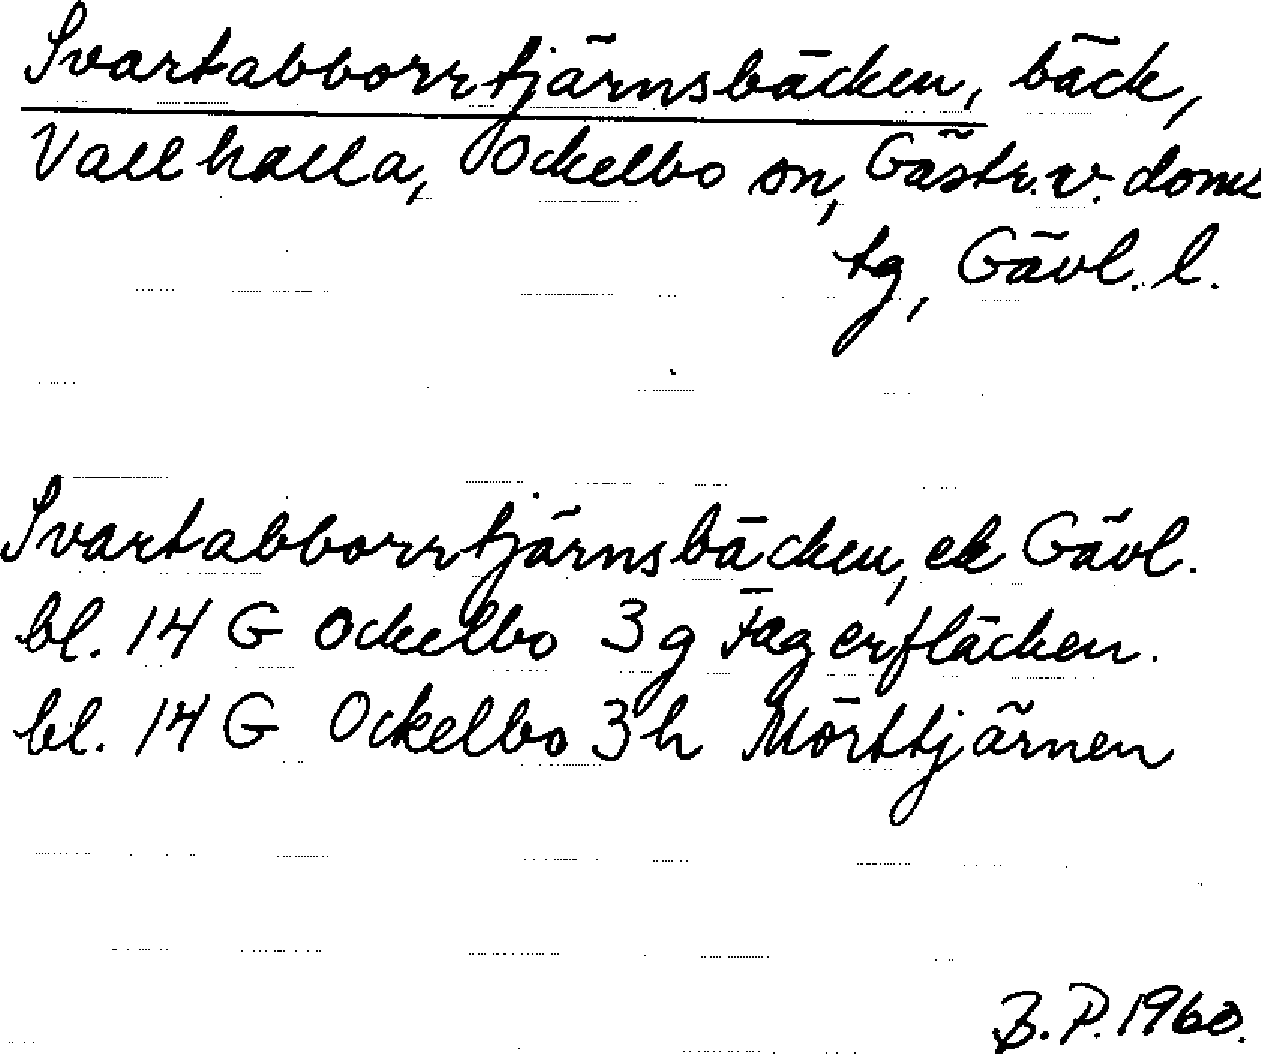 Svartabborrtjärnsbäcken, bäck,
Vallhalla, Ockelbo sn, Gästr. v. doms
tg, Gävl. l.
Svartabborrtjärnsbäcken, ek Gävl.
bl. 14 G Ockelbo 3 g Fagerfläcken.
bl. 14 G Ockelbo 3 h Mörttjärnen
B. P. 1960.